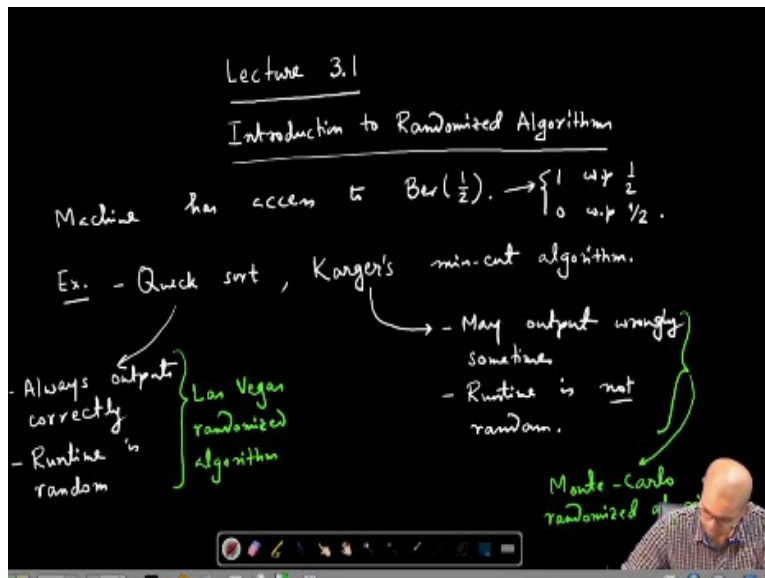 Lecture 3.1
Introduction to Randomized Algorithm
Machine has access to Ber(1/2). → { 1 w.p 1/2
0 w.p 1/2 .
Ex. - Quick sort , Karger's min-cut algorithm.
- Always outputs correctly
- Runtime is random
Las Vegas
randomized
algorithm
- May output wrongly
sometimes
- Runtime is not
random.
Monte-Carlo
randomized